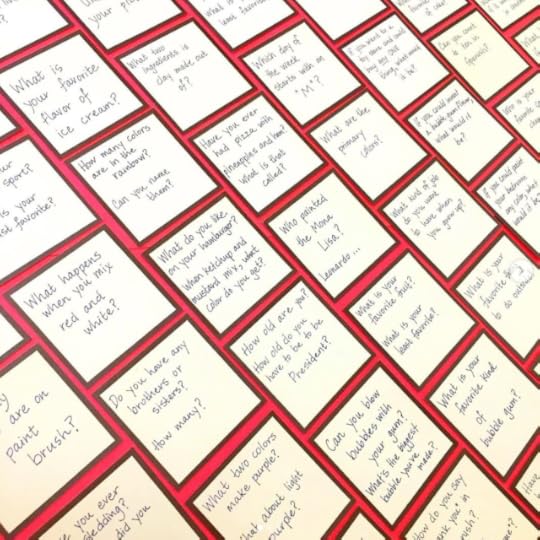 your
What is
least favorite
What is
your favorite
flavor of
ice cream?
What two
ingredients is
clay made out
of?
Which day of
the week
starts with an
"M"?
If you went to a
toy store and could
buy any one
thing, what would
it be?
Can you count
to ten in
Spanish?
your
sport?
is your
favorite?
How many colors
are in the
rainbow?
Can you name
them?
Have you ever
had pizza with
pineapples and ham?
What is that
called?
What are the
primary
colors?
If you could invent
a bubble gum flavor,
what would
it be?
Who is your
favorite
What happens
when you mix
red and
white?
What do you like
on your hamburger?
When ketchup and
mustard mix, what
color do you get?
Who painted
the Mona
Lisa?
Leonardo...
What kind of job
do you want
to have when
you grow up?
If you could paint
your bedroom
any color, what
would it be?
are on
paint
brush?
Do you have any
brothers or
sisters?
How many?
How old are you?
How old do you
have to be to be
President?
What is your
favorite fruit?
What is your
least favorite?
What is your
favorite
to do outside?
you ever
sledding?
did you
What two colors
make purple?
What about light
purple?
Can you blow
bubbles with
your gum?
What's the biggest
bubble you've
made?
What is your
favorite kind
of
bubble gum?
How do you say
thank you in
Have